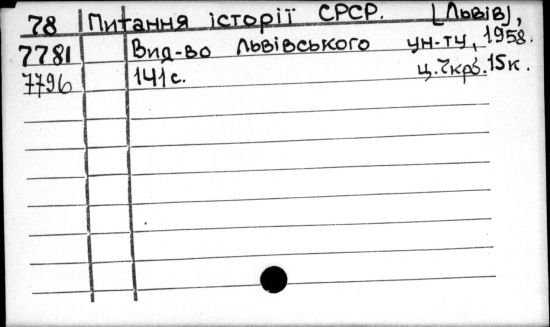 78 Питання історії СРСР. [Львів],
7781 Вид-во Львівського ун-ту, 1958.
7796 141 с. ц. 7крб. 15к.